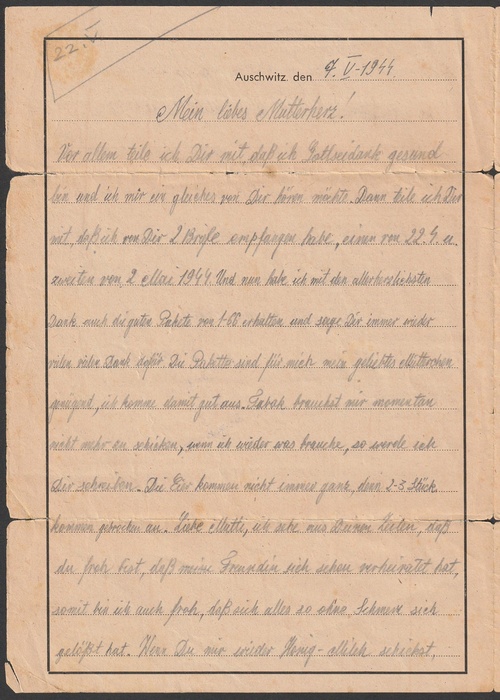 22.V
Auschwitz, den 7. V-1944.
Mein liebes Mutterherz!
Vor allem teile ich Dir mit daß ich Gottseidank gesund
bin und ich mir ein gleiches von Dir hören möchte. Dann teile ich Dir
mit, daß ich von Dir 2 Briefe empfangen habe, einen von 22.4. u.
zweiten von 2 Mai 1944. Und nun habe ich mit den allerherzlichsten
Dank auch die guten Pakete von erhalten und sage Dir immer wieder
vielen vielen Dank dafür. Die Pakette sind für mich mein geliebtes Mütterchen
genügend, ich komme damit gut aus. Tabak brauchst mir momentan
nicht mehr zu schicken, wenn ich wieder was brauche, so werde ich
Dir schreiben. Die Eier kommen nicht immer ganz, denn 2-3 Stück
kommen gebrochen an. Liebe Mutti, ich sehe aus Deinen Zeilen, daß
du froh bist, daß meine Freundin sich schon verheiratet hat,
somit bin ich auch froh, daß sich alles so ohne Schmerz sich
gelößt hat. Wenn Du mir wieder Honig-Milch schickst,